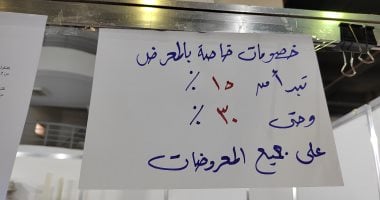 خصومات خاصة بالمعرض
تبدأ من ١٥ ٪
وحتى ٣٠ ٪
على جميع المعروضات